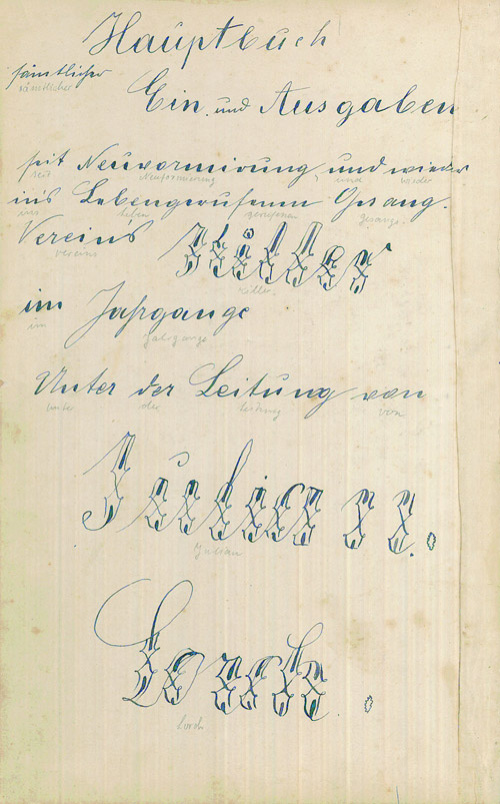 Hauptbuch
sämtlicher
sämtlicher
Ein. und Ausgaben
seit Neuvormirung, und wieder
seit Neuformierung und wieder
in's Lebengerufenen Gesang.
ins leben gerufenen gesangs.
Vereins
vereins
Killer.
im Jahrgange
im Jahrgange
Unter der Leitung von
unter der leitung von
Julian
Julian
Lorch